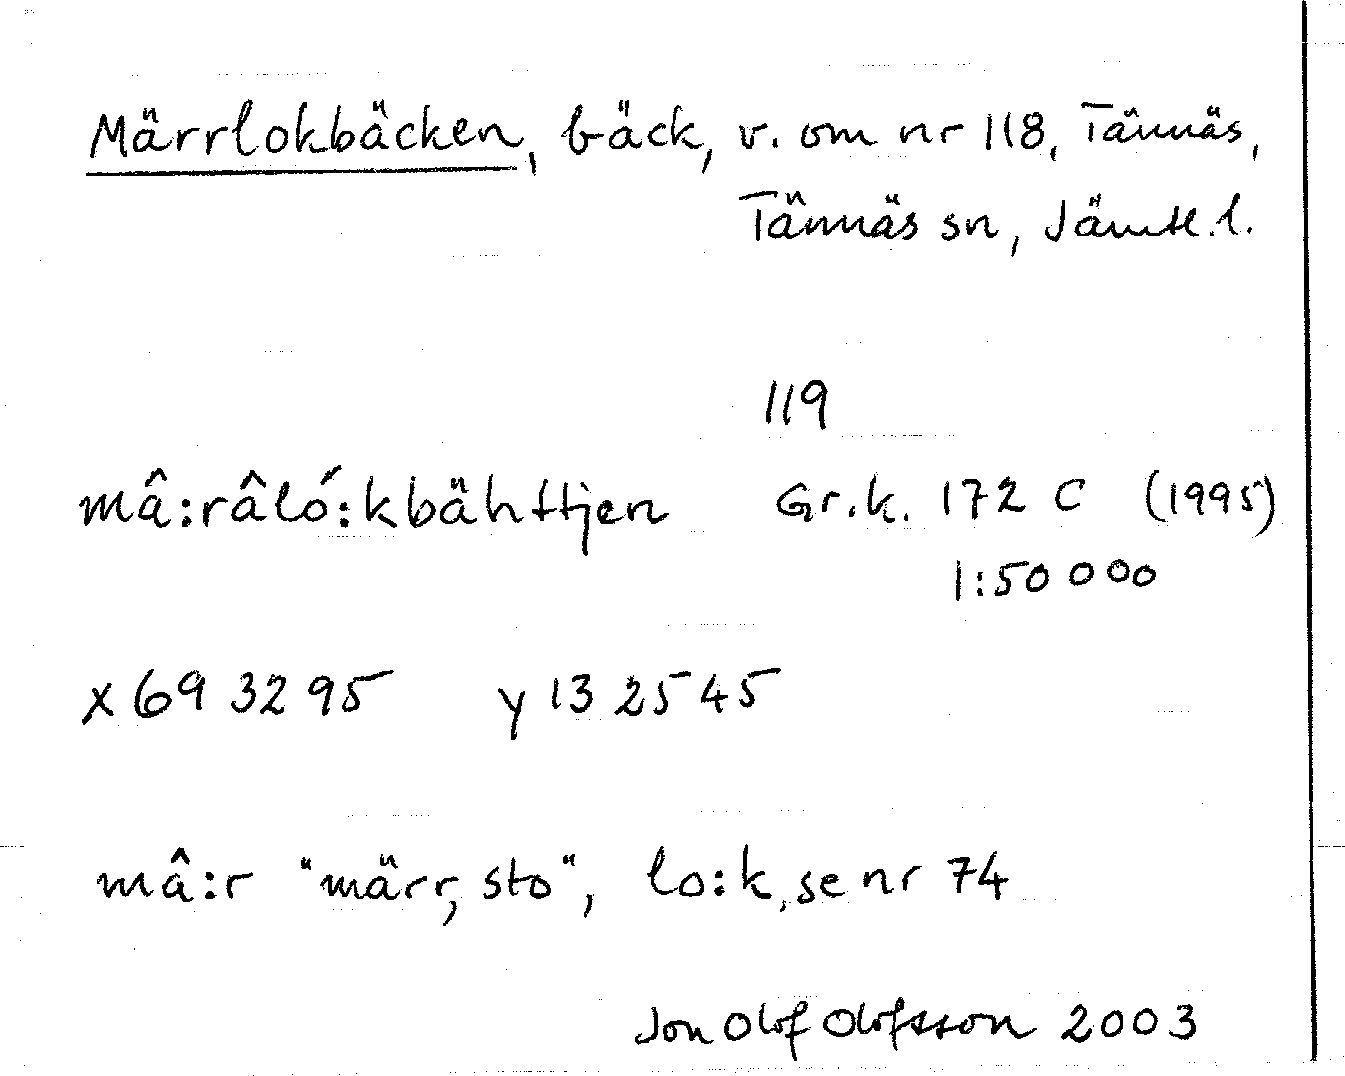 Märrlokbäcken, bäck, v. om nr 118, Tännäs,
Tännäs sn, Jämtl.l.
119
mâ:râló:kbähttjen Gr.k. 172 C (1995)
1:50 000
x 69 32 95 y 13 25 45
mâ:r "märr, sto", lo:k, se nr 74
Jon Olof Olofsson 2003